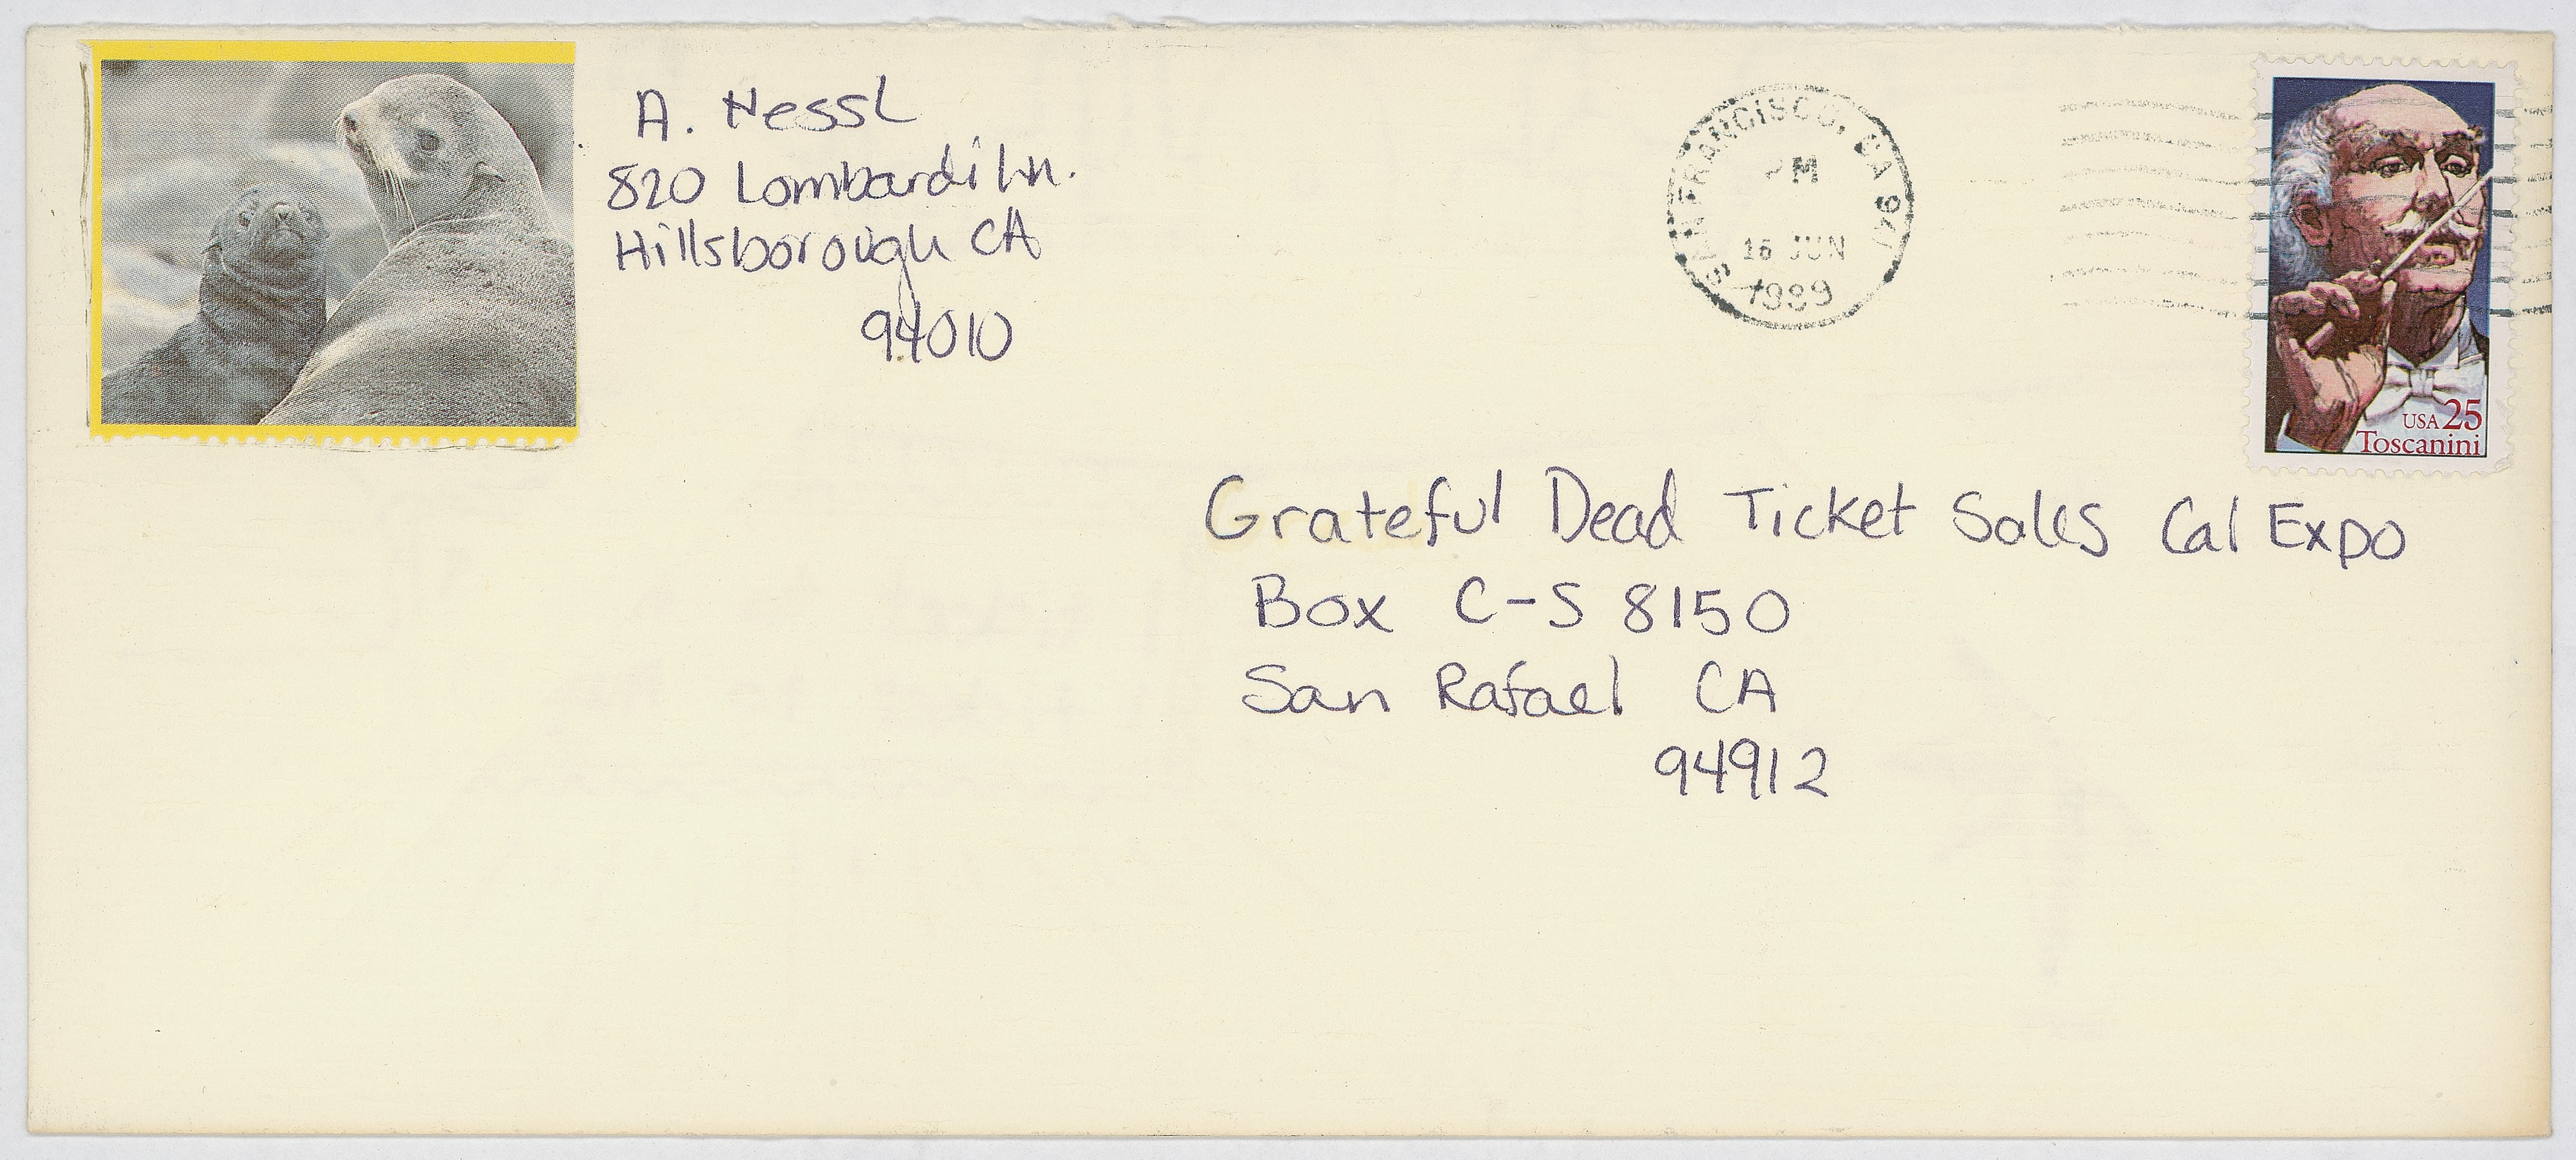 A. Nessl
820 Lombardi Ln.
Hillsborough CA
94010
SAN FRANCISCO, CA 941
PM
15 JUN
1989
USA 25
Toscanini
Grateful Dead Ticket Sales Cal Expo
Box C-S 8150
San Rafael CA
94912